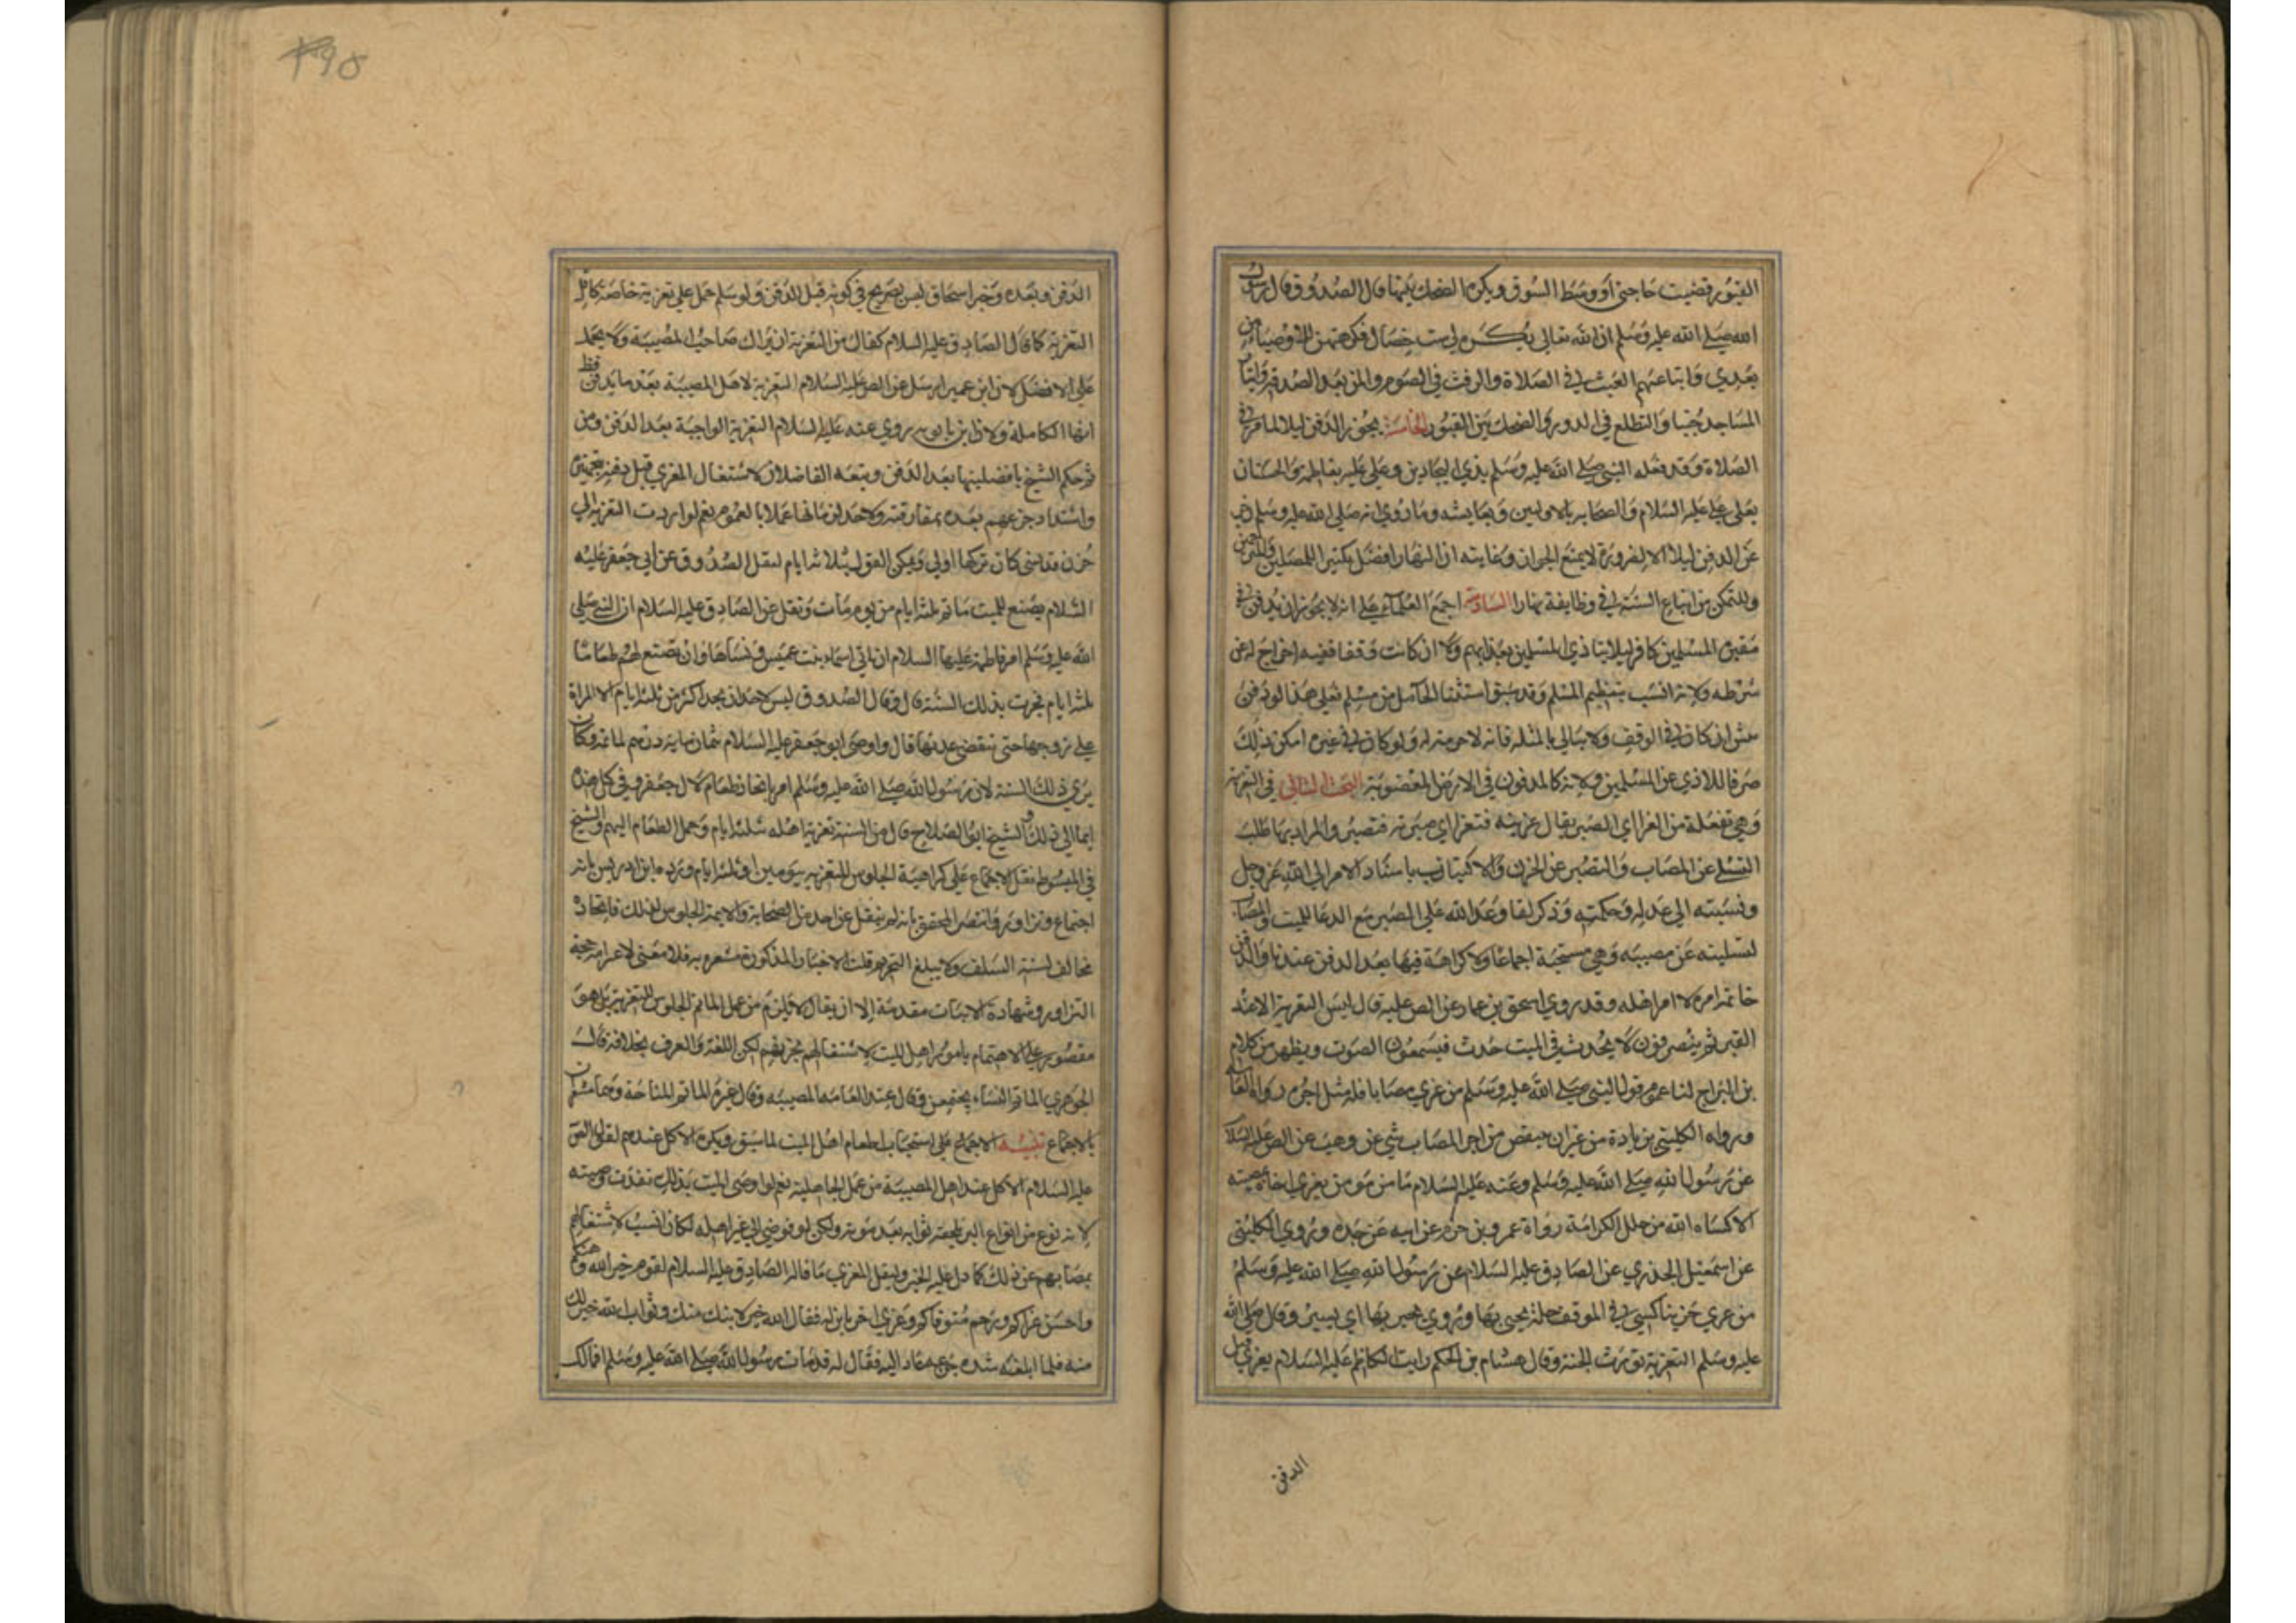 القبور قضيت حاجتي او وسط السوق ويكره الضحك بينها قال الصدوق قال رسول
الله صلى الله عليه وسلم ان الله تعالى يكره لي ست خصال فكرهتهن للاوصياء من
بعدي واتباعهم العبث في الصلاة والرفث في الصوم والمن بعد الصدقة واتيان
المساجد جنبا والتطلع في الدور والضحك بين القبور الخامسة يجوز الدفن ليلا لما مر في
الصلاة وقد فعله النبي صلى الله عليه وسلم بذي البجادين وعلي عليه بفاطمة والحسنان
بعلي علي عليه السلام والصحابة بالاولين وبعايشه وما روي انه صلى الله عليه وسلم نهى
عن الدفن ليلا الا لضرورة لا يمنع الجواز وغايته ان النهار افضل لكثير المصلين والمترحمين
وللتمكن من اتباع السنة في وظايفه نهارا السادسة اجمع العلماء على انه لا يجوز ان يدفن في
مقبرة المسلمين كافر ليلا يتاذى المسلمين بعذابهم ولا ان كانت وقفا ففيه اخراج له عن
شرطه ولانه انسب بتعظيم المسلم وقد سبق استثنا الحامل من مسلم فعلى هذا لو دفن
نبش ان كان في الوقف ولا يبالي بالمثلة فانه لا حرمة له ولو كان في غيره امكن ذلك
صرفا للاذي عن المسلمين ولانه كالمدفون في الارض المغصوبة البحث الثاني في التعزية
وهي تفعلة من العزا اي الصبر يقال عزيته فتعزا اي صبرته فتصبر والمراد بها طلب
التسلي عن المصاب والتصبر عن الحزن والاكتياب باسناد الامر الى الله عز وجل
ونسبته الى عدله وحكمته وذكر لقا وعد الله على الصبر مع الدعا للميت والمصاب
لتسليته عن مصيبه وهي مستحبة اجماعا ولا كراهة فيها بعد الدفن عندنا والدفن
خاتمة امره لا امر اهله وقد روي اسحق بن عمار عن الص عليه قال ليس التعزية الا عند
القبر ثم ينصرفون لا يحدث في الميت حدث فيسمعون الصوت ويظهر من كلام
بن البراج لنا عموم قول النبي صلى الله عليه وسلم من عزي مصابا فله مثل اجره رواه العامة
ورواه الكليني بزيادة من غير ان ينقص من اجر المصاب شي عن وهب عن الص عليه السلام
عن رسول الله صلى الله عليه وسلم وعنه عليه السلام ما من مومن يعزي اخاه بمصيبته
الا كساه الله من حلل الكرامة رواة عمرو بن حزم عن ابيه عن جده وروي الكليني
عن اسمعيل الجذري عن الصادق عليه السلام عن رسول الله صلى الله عليه وسلم
من عزي حزينا كسي في الموقف حلة يحبى بها وروي يحبر بها اي يسير وقال صلى الله
عليه وسلم التعزية تورث الجنة وقال هشام بن الحكم رايت الكاظم عليه السلام يعزي قبل
الدفن
٢٩٥
الدفن وبعده وخبر اسحاق ليس بصريح في كونه قبل الدفن ولو سلم حمل على تعزية خاصة
التعزية كما قال الصادق عليه السلام كفاك من التعزية ان يراك صاحب المصيبة ولا يحمل
على الافضل لان ابن عمير ارسل عن الص عليه السلام التعزية لاهل المصيبة بعد ما يدفن فظ
انها الكاملة ولان ابن بابويه روي عنه عليه السلام التعزية الواجبة بعد الدفن ومن
ثم حكم الشيخ بافضليتها بعد الدفن وتبعه الفاضلان لاشتغال المعزي قبل دفنه بتجهيزه
واشتداد جزعهم بعده بمفارقته ولا حد لزمانها عملا بالعموم نعم لو ادت التعزية الى
حزن قد نسي كان تركها اولى ويمكن القول بثلاثة ايام لنقل الصدوق عن ابي جعفر عليه
السلام يصنع للميت ماتم ثلثه ايام من يوم مات ونقل عن الصادق عليه السلام ان النبي صلى
الله عليه وسلم امر فاطمة عليها السلام ان تاتي اسماء بنت عميس ونساها وان تصنع لهم طعاما
ثلثه ايام فجرت بذلك السنة قال وقال الصدوق ليس لاحد ان يحد اكثر من ثلثه ايام الا المراة
على زوجها حتى تنقضي عدتها قال واوصى ابو جعفر عليه السلام بثمان ماية درهم لماتمه وكان
يرى ذلك السنة لان رسول الله صلى الله عليه وسلم امر باتخاذ طعام لال جعفر وفي كل هذه
ايما الى ذلك والشيخ ابو الصلاح قال من السنة تعزية اهله ثلثه ايام وحمل الطعام اليهم والشيخ
في المبسوط نقل الاجماع على كراهية الجلوس للتعزيه يومين او ثلثه ايام ورده ابن ادريس بانه
اجتماع وتزاور وانتصر المحقق بانه لم ينقل عن احد من الصحابة والايمة الجلوس لذلك فاتخاذه
مخالف لسنة السلف ولا يبلغ التحريم قلت الاخبار المذكورة مشعره به فلا معنى لاغرا مرجحه
التزاور وشهادة الاثبات مقدمة الا ان يقال لا يلزم من عمل الماتم الجلوس للتعزية بل هو
مقصور على الاهتمام بامور اهل الميت لاشتغالهم بحزنهم لكن اللغة والعرف بخلافه قال
الجوهري الماتم النساء يجتمعن وقال عند العامه المصيبه وقال غيره الماتم المناحة وهما مشعران
بالاجماع تنبيه الاجماع على استحباب اطعام اهل الميت لما سبق ويكره الاكل عندهم لقول الص
عليه السلام الاكل عند اهل المصيبة من عمل الجاهلية نعم لو اوصى الميت بذلك نفذت وصيته
لانه نوع من انواع البر يلحقه ثوابه بعد موته ولكن لو فوض الى غير اهله لكان انسب لاشتغالهم
بمصابهم عن ذلك كما دل عليه الخبر وليقل المعزي ما قاله الصادق عليه السلام لقوم جبر الله وهنكم
واحسن عزاكم ورحم متوفاكم وعزي اخر بابن له فقال الله خير لابنك منك وثواب الله خير لك
منه فلما ابلغه شدة جزعه عاد اليه فقال له قد مات رسول الله صلى الله عليه وسلم افما لك